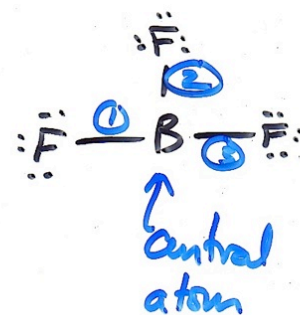 :F:
②
:F ① B F:
③
central
atom